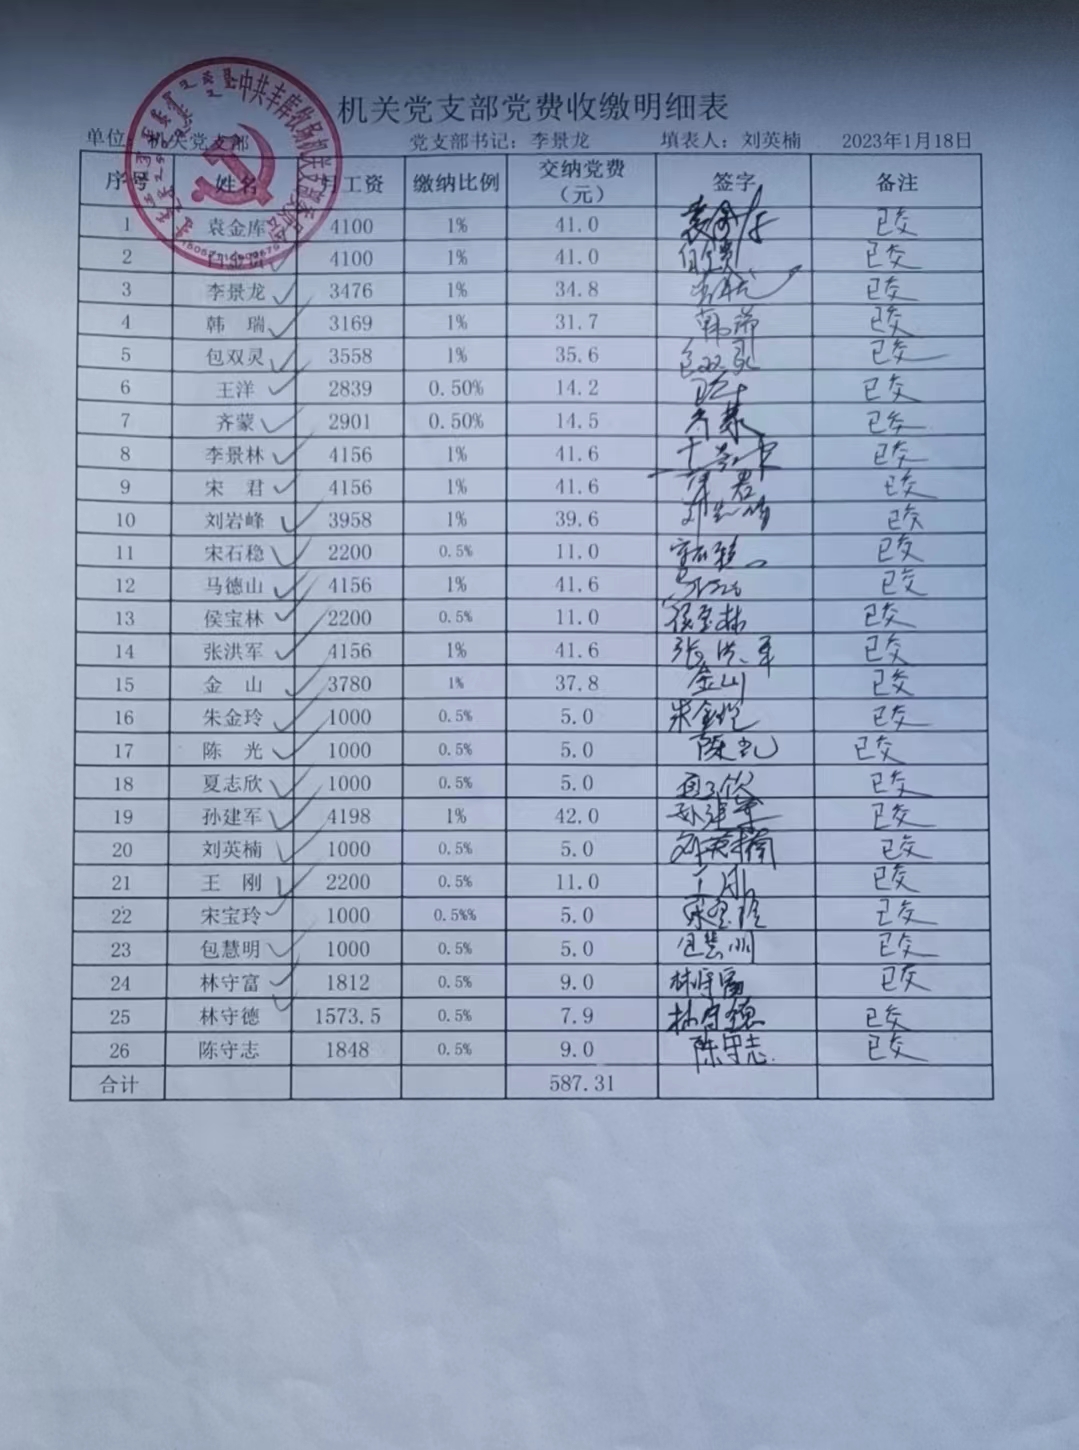 机关党支部党费收缴明细表
单位：机关党支部 党支部书记：李景龙 填表人：刘英楠 2023年1月18日
序号 姓名 月工资 缴纳比例 交纳党费（元） 签字 备注
1 袁金库 4100 1% 41.0 袁金库 已交
2 4100 1% 41.0 已交
3 李景龙 3476 1% 34.8 李景龙 已交
4 韩 瑞 3169 1% 31.7 韩瑞 已交
5 包双灵 3558 1% 35.6 包双灵 已交
6 王洋 2839 0.50% 14.2 王洋 已交
7 齐蒙 2901 0.50% 14.5 齐蒙 已交
8 李景林 4156 1% 41.6 已交
9 宋 君 4156 1% 41.6 宋君 已交
10 刘岩峰 3958 1% 39.6 已交
11 宋石稳 2200 0.5% 11.0 宋石稳 已交
12 马德山 4156 1% 41.6 已交
13 侯宝林 2200 0.5% 11.0 侯宝林 已交
14 张洪军 4156 1% 41.6 张洪军 已交
15 金 山 3780 1% 37.8 金山 已交
16 朱金玲 1000 0.5% 5.0 朱金玲 已交
17 陈 光 1000 0.5% 5.0 陈光 已交
18 夏志欣 1000 0.5% 5.0 夏志欣 已交
19 孙建军 4198 1% 42.0 孙建军 已交
20 刘英楠 1000 0.5% 5.0 刘英楠 已交
21 王 刚 2200 0.5% 11.0 王刚 已交
22 宋宝玲 1000 0.5%% 5.0 宋宝玲 已交
23 包慧明 1000 0.5% 5.0 包慧明 已交
24 林守富 1812 0.5% 9.0 林守富 已交
25 林守德 1573.5 0.5% 7.9 林守德 已交
26 陈守志 1848 0.5% 9.0 陈守志 已交
合计 587.31